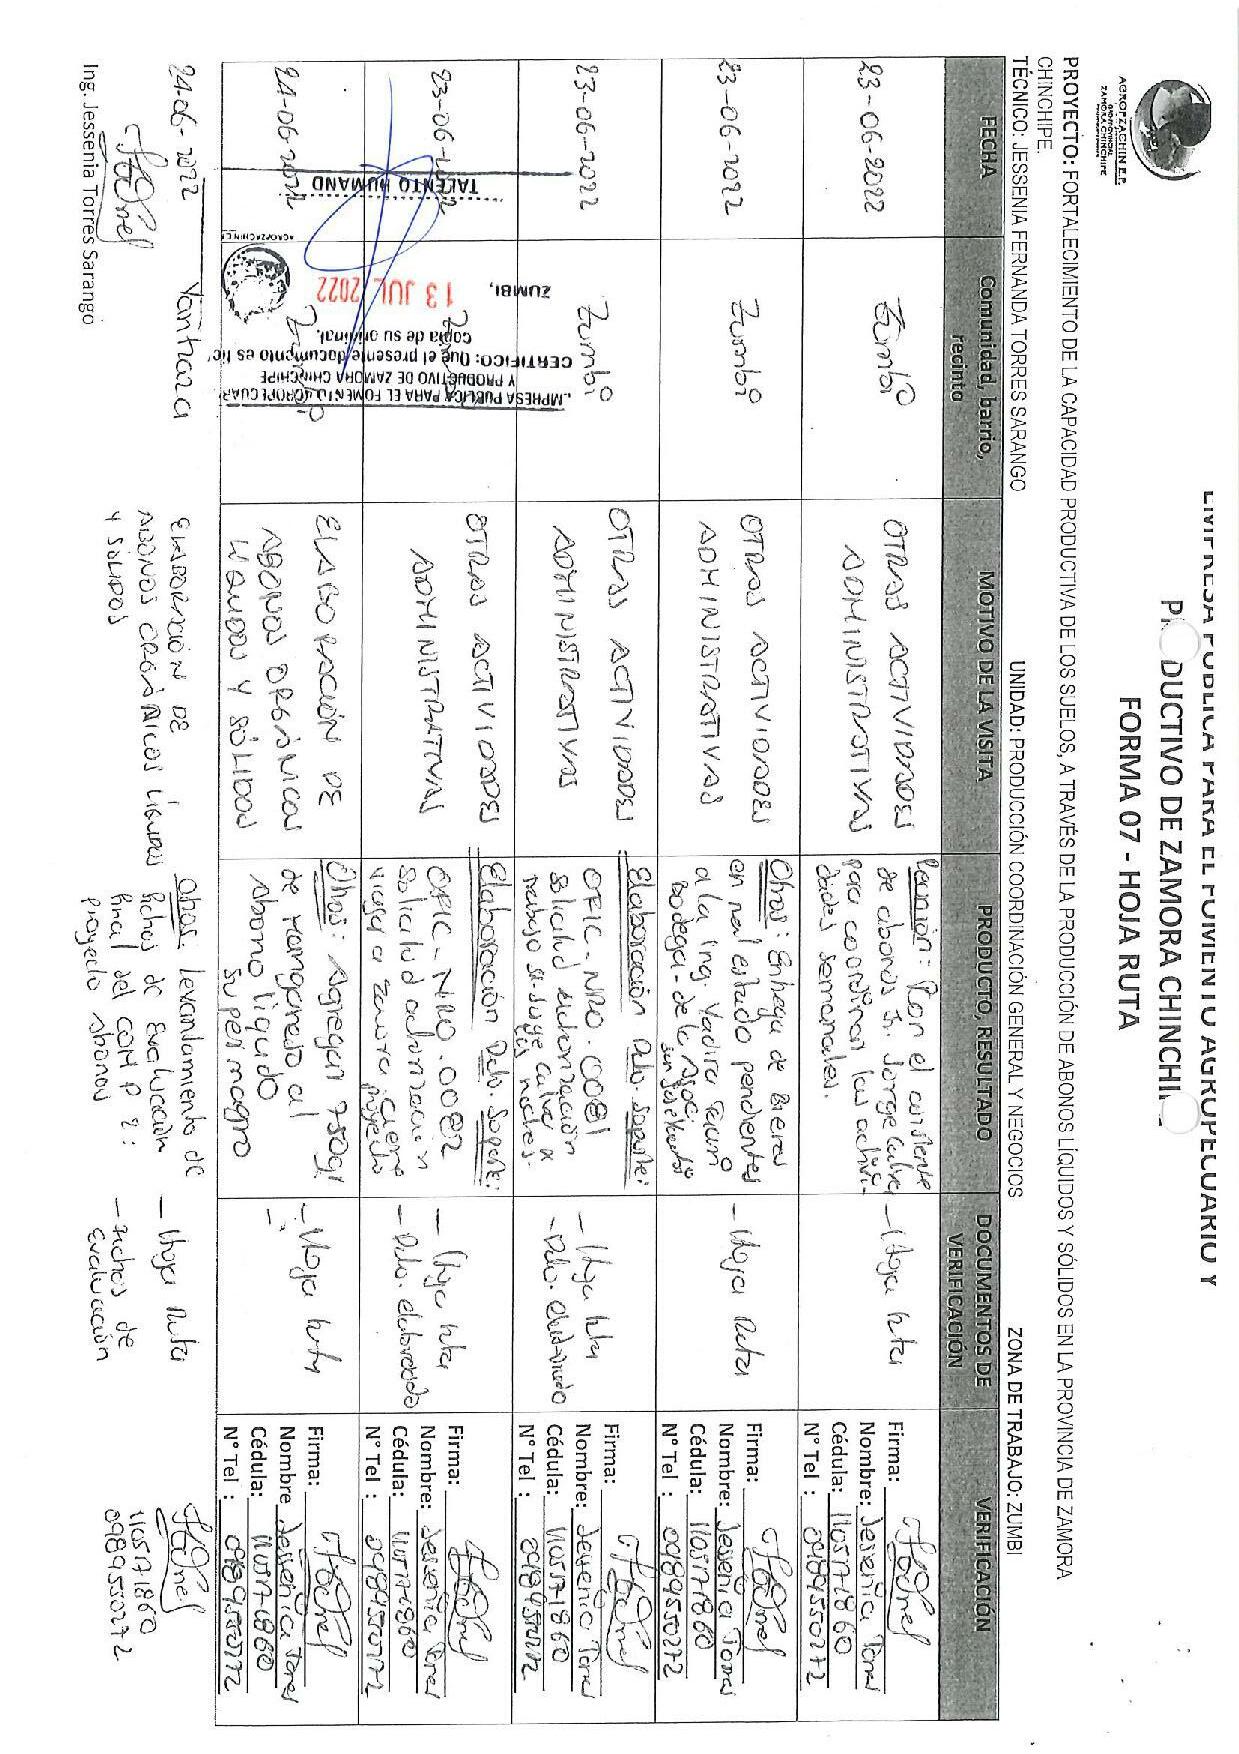 EMPRESA PÚBLICA PARA EL FOMENTO AGROPECUARIO Y
DUCTIVO DE ZAMORA CHINCHI
FORMA 07 - HOJA RUTA
AGROPZACHIN E.P.
ZAMORA CHINCHIPE
PROYECTO: FORTALECIMIENTO DE LA CAPACIDAD PRODUCTIVA DE LOS SUELOS, A TRAVÉS DE LA PRODUCCIÓN DE ABONOS LÍQUIDOS Y SÓLIDOS EN LA PROVINCIA DE ZAMORA
CHINCHIPE.
TÉCNICO: JESSENIA FERNANDA TORRES SARANGO UNIDAD: PRODUCCIÓN COORDINACIÓN GENERAL Y NEGOCIOS ZONA DE TRABAJO: ZUMBI
FECHA
Comunidad, barrio,
recinto
MOTIVO DE LA VISITA
PRODUCTO, RESULTADO
DOCUMENTOS DE
VERIFICACIÓN
VERIFICACIÓN
23-06-2022
Zumbi
OTRAS ACTIVIDADES
ADMINISTRATIVAS
Reunión: Con el asistente
de abonos Sr. Jorge Calva
para coordinar las activi-
dades semanales.
- Hoja Ruta
Firma:
Nombre: Jessenia Torres
Cédula: 1105171860
N° Tel : 0989550272
23-06-2022
Zumbi
OTRAS ACTIVIDADES
ADMINISTRATIVAS
Otras: Entrega de Bienes
en mal estado pendientes
a la Ing. Yadira
bodega - de la Asoci
- Hoja Ruta
Firma:
Nombre: Jessenia Torres
Cédula: 1105171860
N° Tel : 0989550272
23-06-2022
Zumbi
OTRAS ACTIVIDADES
ADMINISTRATIVAS
Elaboración Doto. Soporte:
OFIC-NRO.0081
Solicitud autorización
trabajo Sr. Jorge Calva x
las noches.
- Hoja Ruta
- Doto. elaborado
Firma:
Nombre: Jessenia Torres
Cédula: 1105171860
N° Tel : 0989550272
23-06-2022
OTRAS ACTIVIDADES
ADMINISTRATIVAS
Elaboración Doto. Soporte:
OFIC-NRO.0082
Solicitud autorización
proyecto
- Hoja Ruta
- Doto. elaborado
Firma:
Nombre: Jessenia Torres
Cédula: 1105171860
N° Tel : 0989550272
24-06-2022
ELABORACIÓN DE
ABONOS ORGÁNICOS
LÍQUIDOS Y SÓLIDOS
Otras: Agregar 750gr
de Manganeso al
abono líquido
Supermagro
- Hoja Ruta
Firma:
Nombre Jessenia Torres
Cédula: 1105171860
N° Tel : 0989550272
EMPRESA PUBLICA PARA EL FOMENTO AGROPECUAR
Y PRODUCTIVO DE ZAMORA CHINCHIPE
CERTIFICO: Que el presente documento es fie
Copia de su original.
ZUMBI, 13 JUL 2022
TALENTO HUMANO
24-06-2022
Yantzaza
ELABORACIÓN DE
ABONOS ORGÁNICOS LÍQUIDOS
Y SÓLIDOS
Otras: Levantamiento de
fichas de Evaluación
final del COMP 2:
proyecto abonos
- Hoja Ruta
- Fichas de
Evaluación
1105171860
0989550272
Ing. Jessenia Torres Sarango